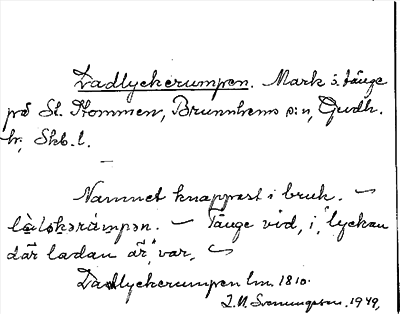 Ladlyckerumpen. Mark i tånge
på St. Hommen, Brunnhems s:n, Gudh.
hr, Skb. l.
—
Namnet knappast i bruk. ~
lè̱lø̱kərámpən. — Tånge vid, i, "lyckan
där ladan är", var, ~
Ladlyckerumpen lm. 1810.
1949,